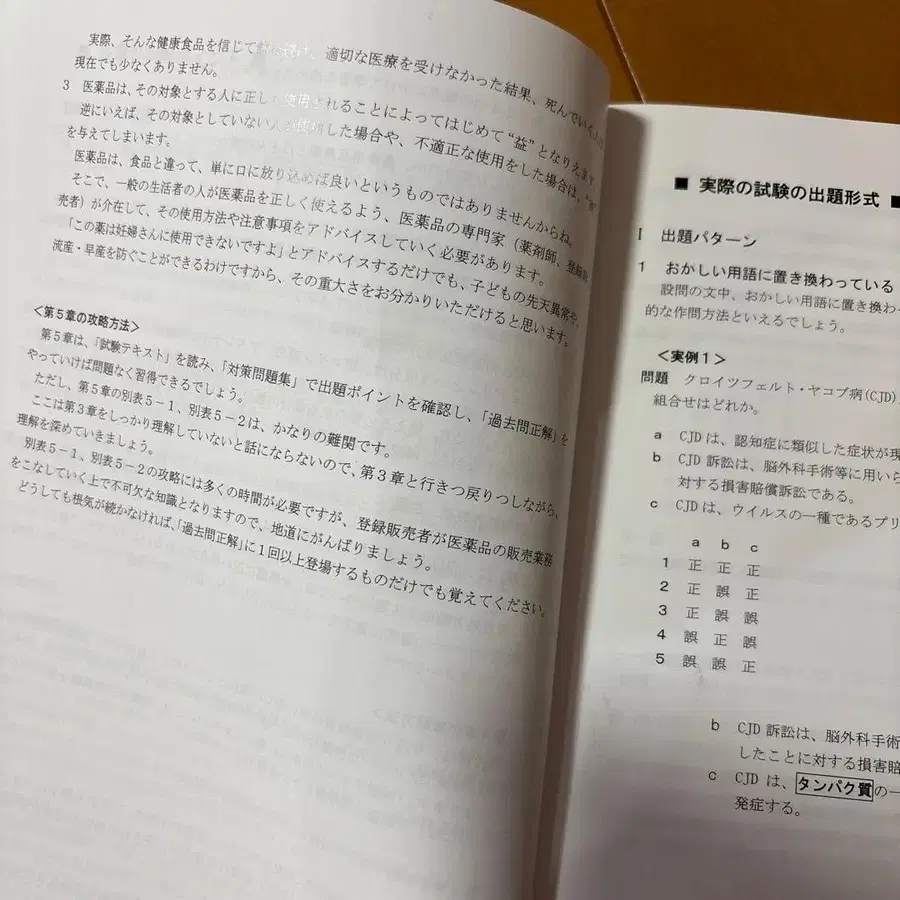 実際、そんな健康食品を信じて
適切な医療を受けなかった結果、死んでいく
現在でも少なくありません。
3 医薬品は、その対象とする人に正しく使用されることによってはじめて“益”となりえます。
逆にいえば、その対象としていない人が使用した場合や、不適正な使用をした場合は、
を与えてしまいます。
医薬品は、食品と違って、単に口に放り込めば良いというものではありませんからね。
そこで、一般の生活者の人が医薬品を正しく使えるよう、医薬品の専門家（薬剤師、登録販
売者）が介在して、その使用方法や注意事項をアドバイスしていく必要があります。
「この薬は妊婦さんに使用できないですよ」とアドバイスするだけでも、子どもの先天異常や、
流産・早産を防ぐことができるわけですから、その重大さをお分かりいただけると思います。
＜第５章の攻略方法＞
第５章は、「試験テキスト」を読み、「対策問題集」で出題ポイントを確認し、「過去問正解」を
やっていけば問題なく習得できるでしょう。
ただし、第５章の別表５－１、別表５－２は、かなりの難関です。
ここは第３章をしっかり理解していないと話にならないので、第３章と行きつ戻りつしながら、
理解を深めていきましょう。
別表５－１、別表５－２の攻略には多くの時間が必要ですが、登録販売者が医薬品の販売業務
をこなしていく上で不可欠な知識となりますので、地道にがんばりましょう。
どうしても根気が続かなければ、「過去問正解」に１回以上登場するものだけでも覚えてください。
■ 実際の試験の出題形式 ■
Ⅰ 出題パターン
1 おかしい用語に置き換わっている
設問の文中、おかしい用語に置き換わっ
的な作問方法といえるでしょう。
＜実例１＞
問題 クロイツフェルト・ヤコブ病(CJD)
組合せはどれか。
a CJDは、認知症に類似した症状が現
b CJD訴訟は、脳外科手術等に用いら
対する損害賠償訴訟である。
c CJDは、ウイルスの一種であるプリ
a b c
1 正 正 正
2 正 誤 正
3 正 誤 誤
4 誤 正 誤
5 誤 誤 正
b CJD訴訟は、脳外科手術
したことに対する損害賠
c CJDは、タンパク質の一
発症する。